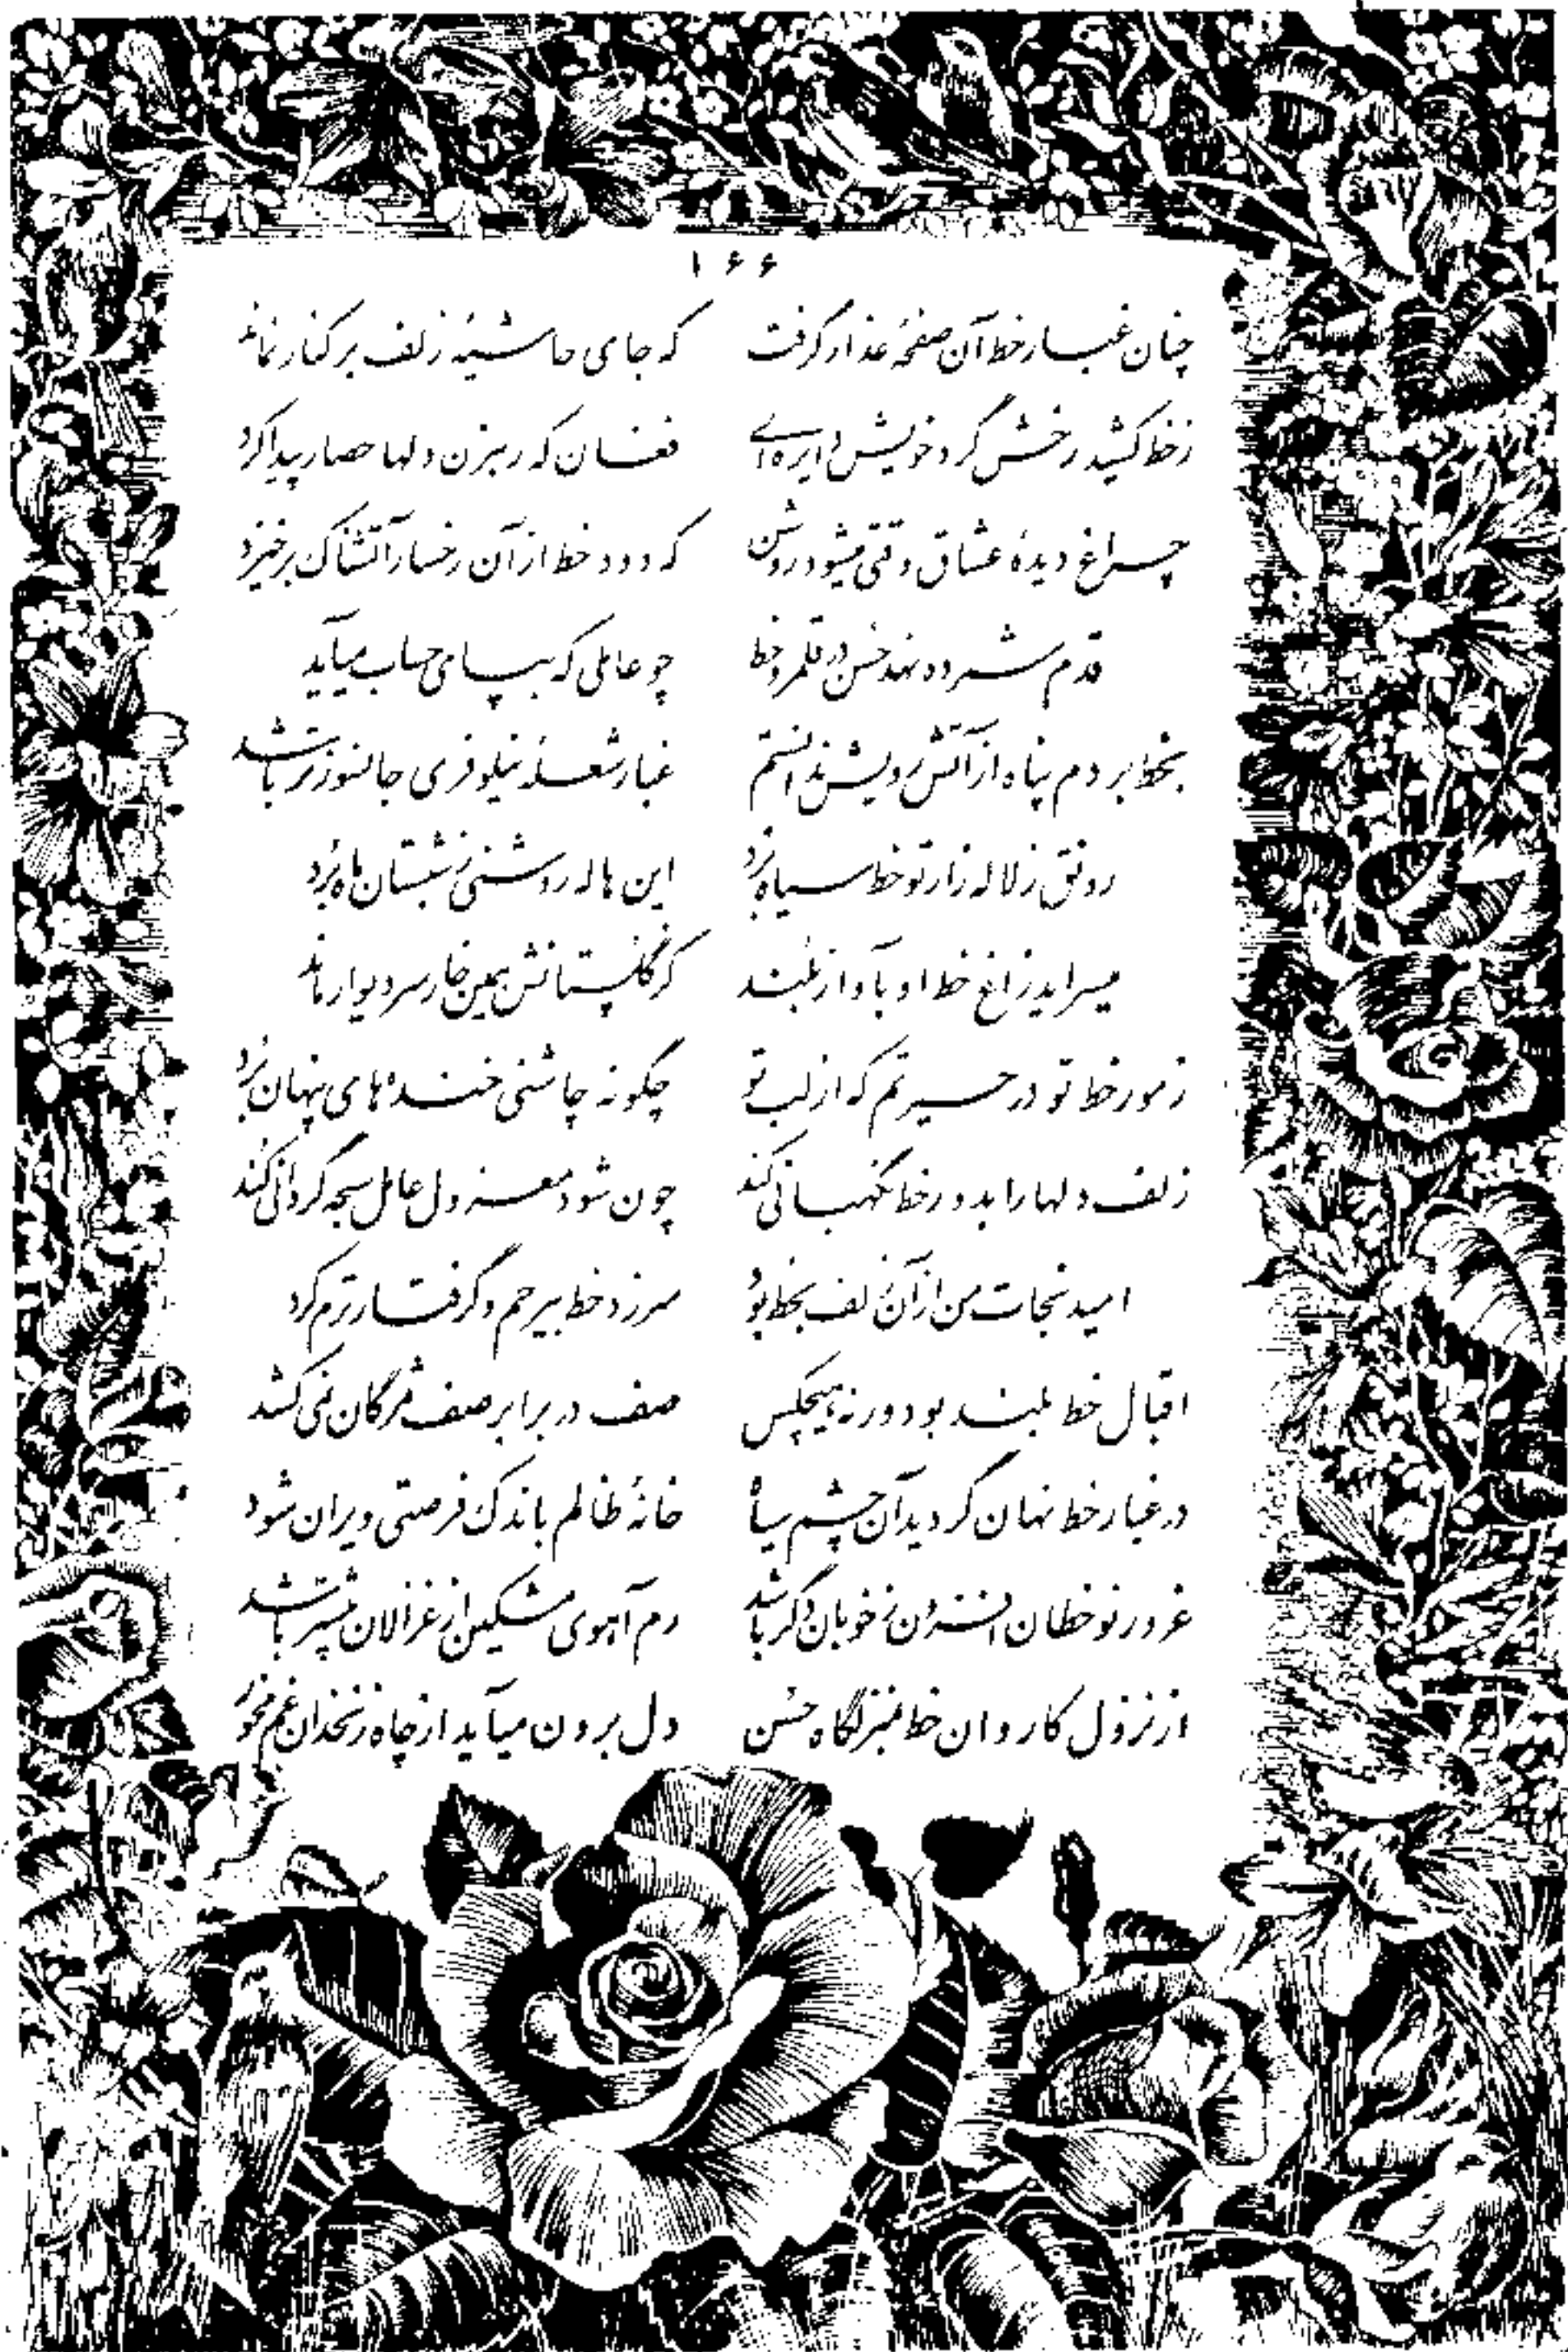 ۱۶۶
چنان غبار خط آن صفحهٔ عذار گرفت که جای حاشیهٔ زلف بر کنار نماند
ز خط کشید رخش گرد خویش دایره‌ای فغان که رهزن دلها حصار پیدا کرد
چراغ دیدهٔ عشاق وقتی میشود روشن که دود خط از آن رخسار آتشناک برخیزد
قدم شمرده نهد حسن در قلمرو خط چو عاملی که بپای حساب میآید
بخط بردم پناه از آتش رویش ندانستم غبار شعلهٔ نیلوفری جانسوزتر باشد
رونق ز لاله‌زار تو خط سیاه برد این هاله روشنی ز شبستان ماه برد
میسراید زاغ خط او بآواز بلند کز گلستانش همین خار سر دیوار ماند
ز مور خط تو در حیرتم که از لب تو چگونه چاشنی خنده‌های پنهان برد
زلف دلها را بدور خط نگهبانی کند چون شود معزول عامل سبحه گردانی کند
امید نجات من از آن زلف بخط بود سر زد خط بیرحم و گرفتارترم کرد
اقبال خط بلند بود ورنه هیچکس صف در برابر صف مژگان نمی کشد
در غبار خط نهان گردید آن چشم سیاه خانهٔ ظالم باندک فرصتی ویران شود
غرور نوخطان افزون ز خوبان دگر باشد رم آهوی مشکین از غزالان بیشتر باشد
از نزول کاروان خط بمنزلگاه حسن دل برون میآید از چاه زنخدان غم مخور